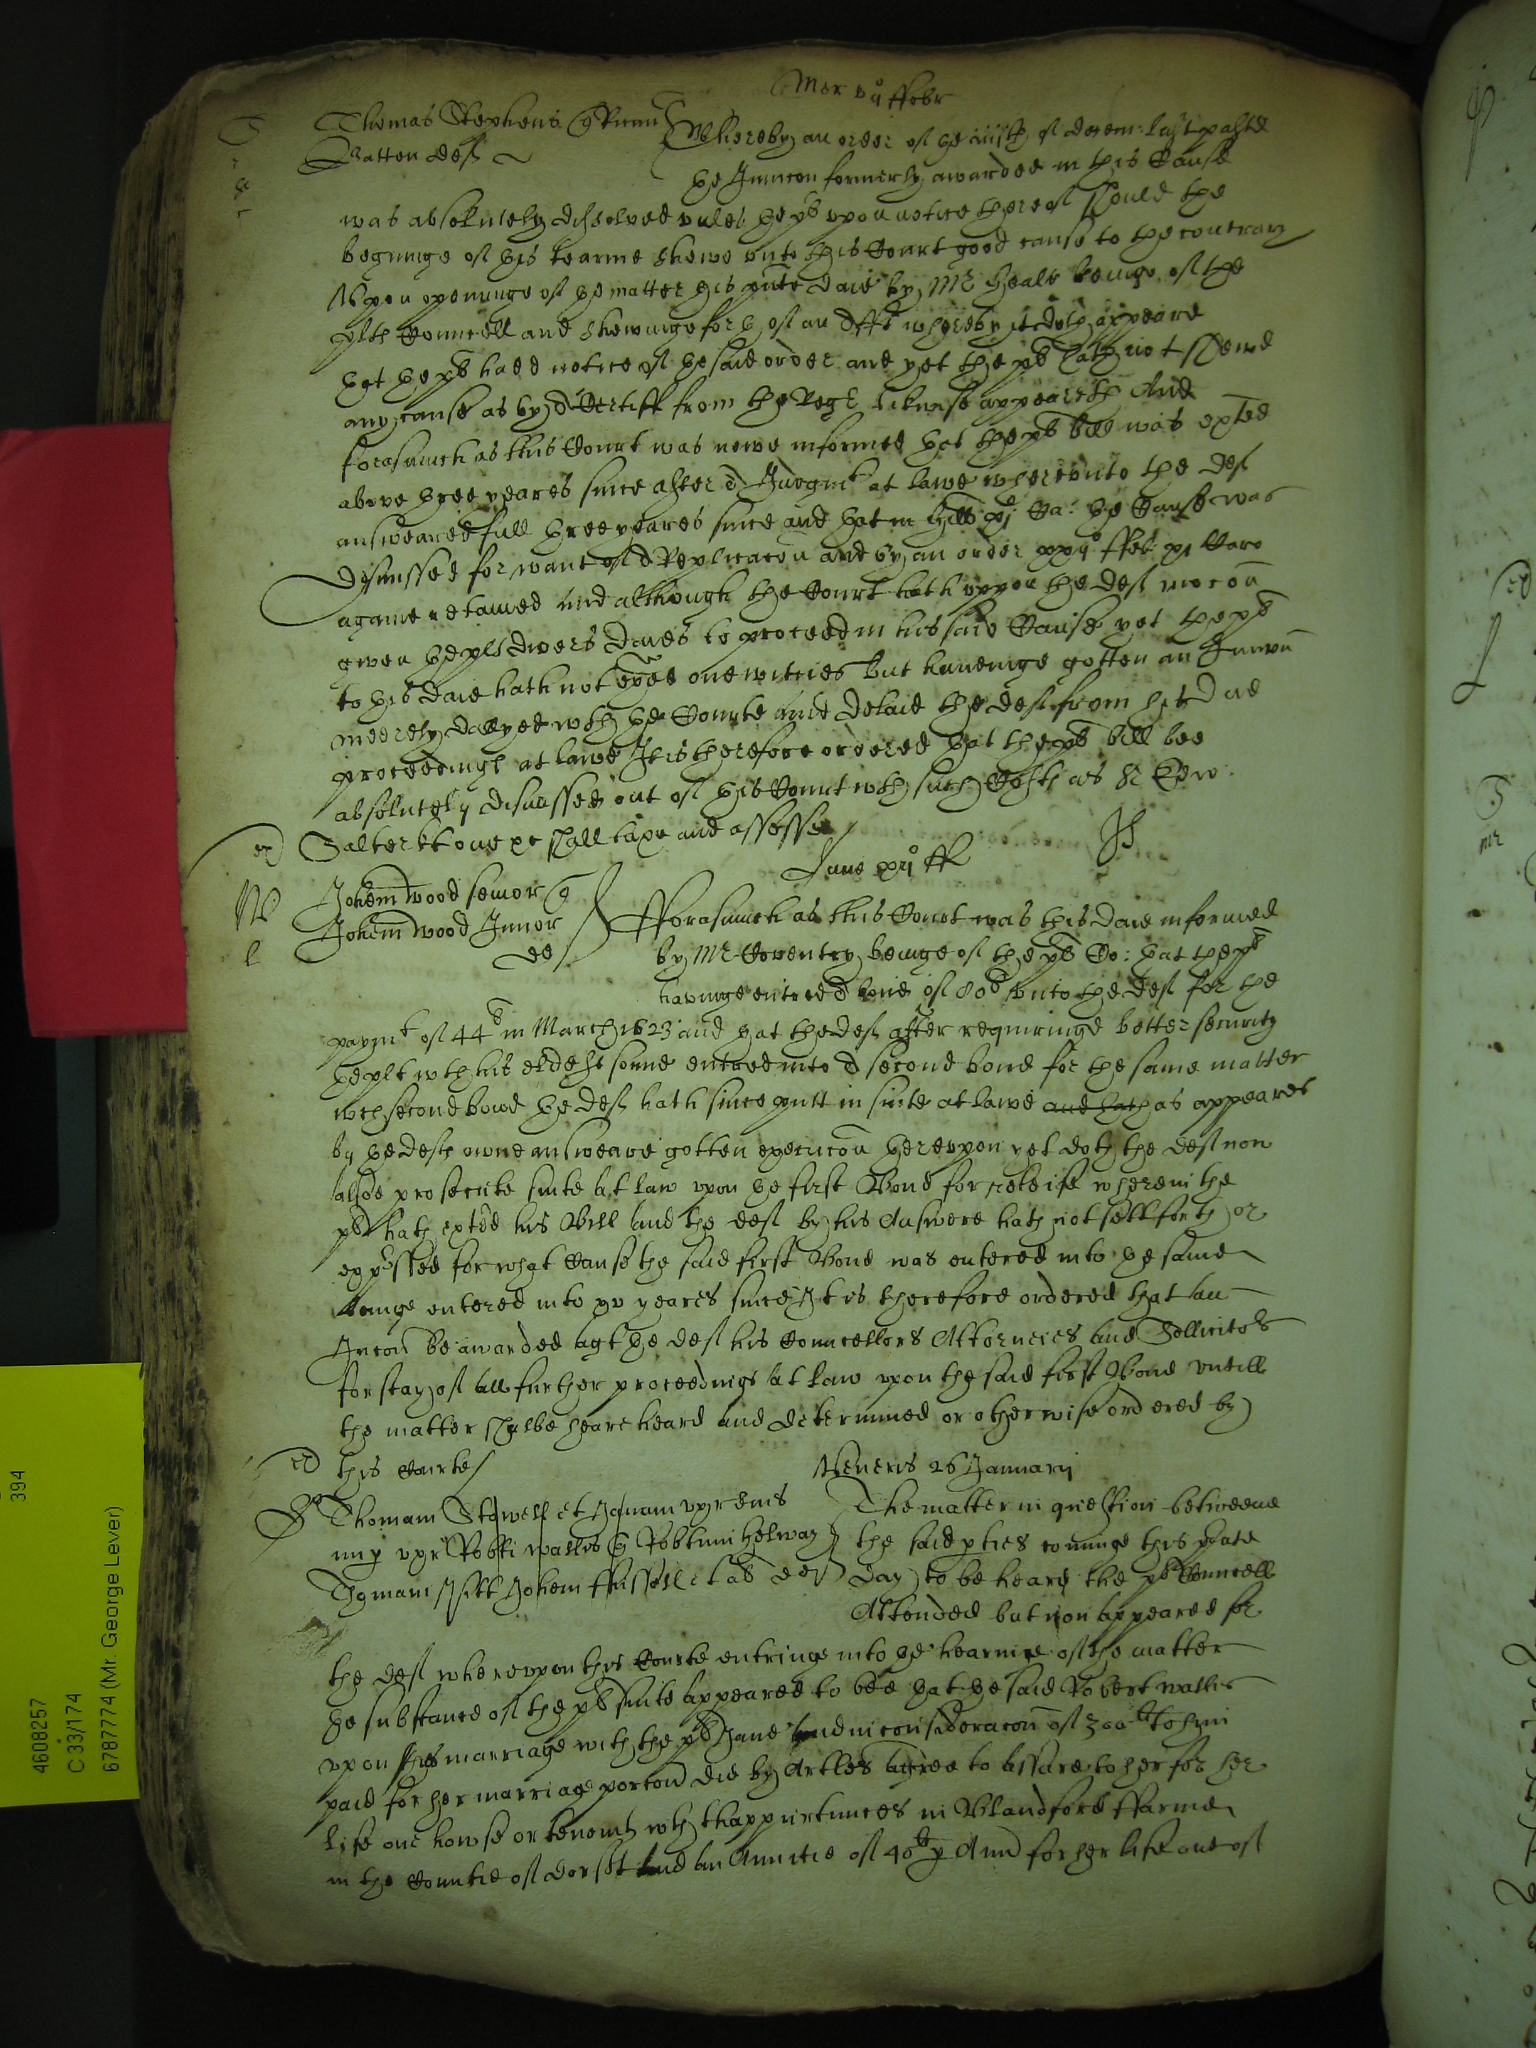 Mer vijo ffebr
Thomas Stephens q Ricum
Batten def
Whereby an order of the of decem: last paste
the Iniuncon formerly awarded in this Cause
was absolutely dissolved unles the plt upon notice thereof should the
begininge of this tearme shewe unto this Court good cause to the contrary
Upon openinge of the matter this pnte daie by Mr Heale beinge of the
Councell and shewinge forth of an Afft whereby it doth appeare
that the plt hadd notice of the said order and yet the plt hath not shewd
any cause as by a Certiff from the Regr likewise appeareth And
forasmuch as this Court was nowe informed that the plts bill was exted
above three yeares since after a Iudgmt at lawe whereunto the def
answeared full three yeares since and that in Hill xxj Ca: the Cause was
dismissed for want of a Replicacon and by an order ffeb
againe retained And although the Court hath uppon the def mocon
given the plt divers daies to proceed in his said Cause yet the plt
to this daie hath not one witnes but haveinge gotten an Iniuncn
meerely dallyed wth the Courte and delaid the def from his due
proceedings at lawe It is therefore ordered that the plts bill bee
absolutely dismissed out of this Court wth such Costs as Sr Edw:
Salter kt one shall taxe and assesse
Iune ff
Johem Wood senior q
Johem Wood Junior
def
Fforasmuch as this Court was this daie informed
by Mr Coventry beinge of the plts Co: that the plt
havinge entred a bond of 80l unto the def for the
paymt of 44l in March 1623 and that the def after requiringe better security
the plt wth his eldest sonne entred into a second bond for the same matter
wch second bond the def hath since putt in suite at lawe and hath as appeares
by the defts owne answeare gotten execucon thereupon yet doth the def now
alsoe prosecute suite at law upon the first Bond for wherein the
plt hath exted his Bill and the def by his Answere hath not sett forth or
expressed for what Cause the said first Bond was entered into the same
beinge entered into xv yeares since It is therefore ordered that an
Iniuncon be awarded agt the def his Councellors Attornies and Sollicitors
for stay of all further proceedings at law upon the said first Bond untill
the matter shalbe heare heard and determined or otherwise ordered by
this Courte
Veneris 26 Januarij
Thomam Stowell et Janam uxor eius
nup uxr Robti Wallis q Robtum Helway
Thomam Johem Russell et al def
The matter in question betweene
the said pties cominge this pnte
day to be heard the plts Councell
Attended but non appeared for
the def whereupon this Courte entringe into the hearinge of the matter
the substance of the plts suite appeared to bee that the said Robert Wallis
upon his marriage with the plt Jane and in consideracon of 300l to him
paid for her marriage porton did by Artles agree to assure to her for her
life one howse or tenemt wth thappurtunces in Blandford Ffarme
in the Countie of Dorset and an Annitie of 40l p Ann for her life out of
394
4608257
C 33/174
6787774 (Mr. George Lever)